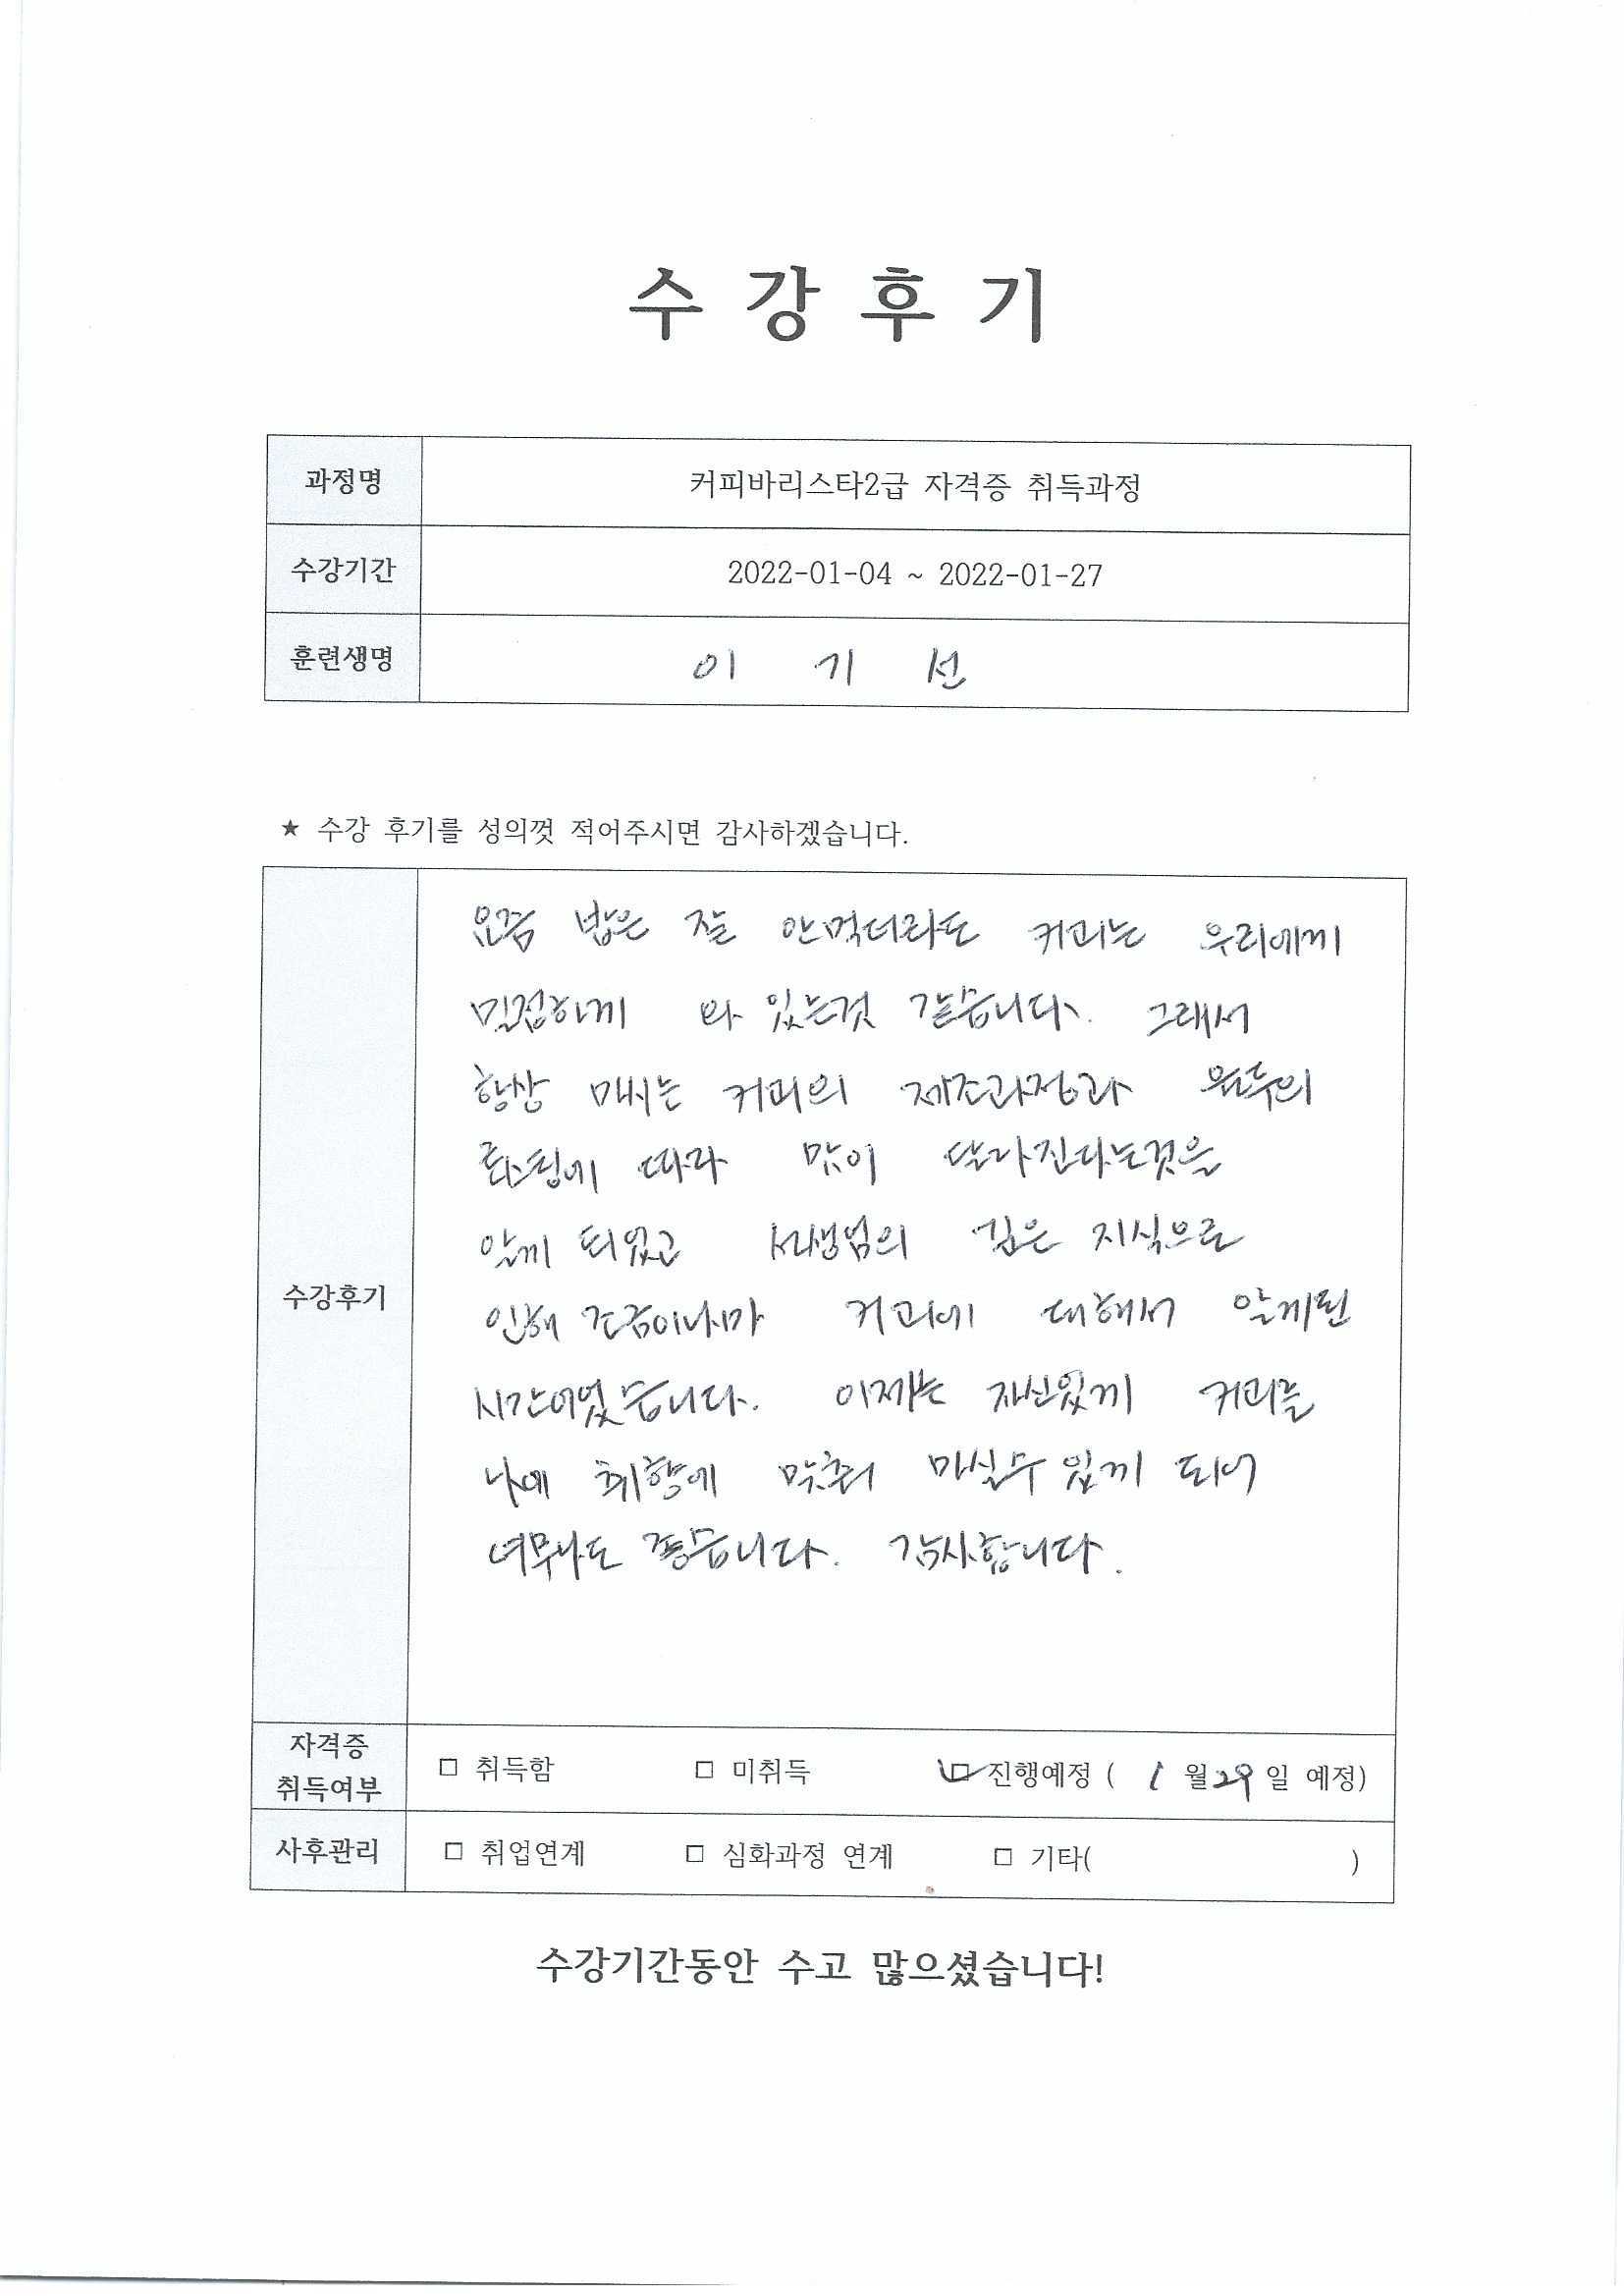 수 강 후 기
과정명 커피바리스타2급 자격증 취득과정
수강기간 2022-01-04 ~ 2022-01-27
훈련생명 이 기 선
★ 수강 후기를 성의껏 적어주시면 감사하겠습니다.
수강후기
요즘 밥은 잘 안먹더라도 커피는 우리에게
밀접하게 와 있는것 같습니다. 그래서
항상 마시는 커피의 제조과정과 원두의
로스팅에 따라 맛이 달라진다는것을
알게 되었고 선생님의 깊은 지식으로
인해 조금이나마 커피에 대해서 알게된
시간이었습니다. 이제는 자신있게 커피를
나에 취향에 맞춰 마실수 있게 되어
너무나도 좋습니다. 감사합니다.
자격증
취득여부 □ 취득함 □ 미취득 ☑ 진행예정 ( 1 월 29 일 예정)
사후관리 □ 취업연계 □ 심화과정 연계 □ 기타( )
수강기간동안 수고 많으셨습니다!